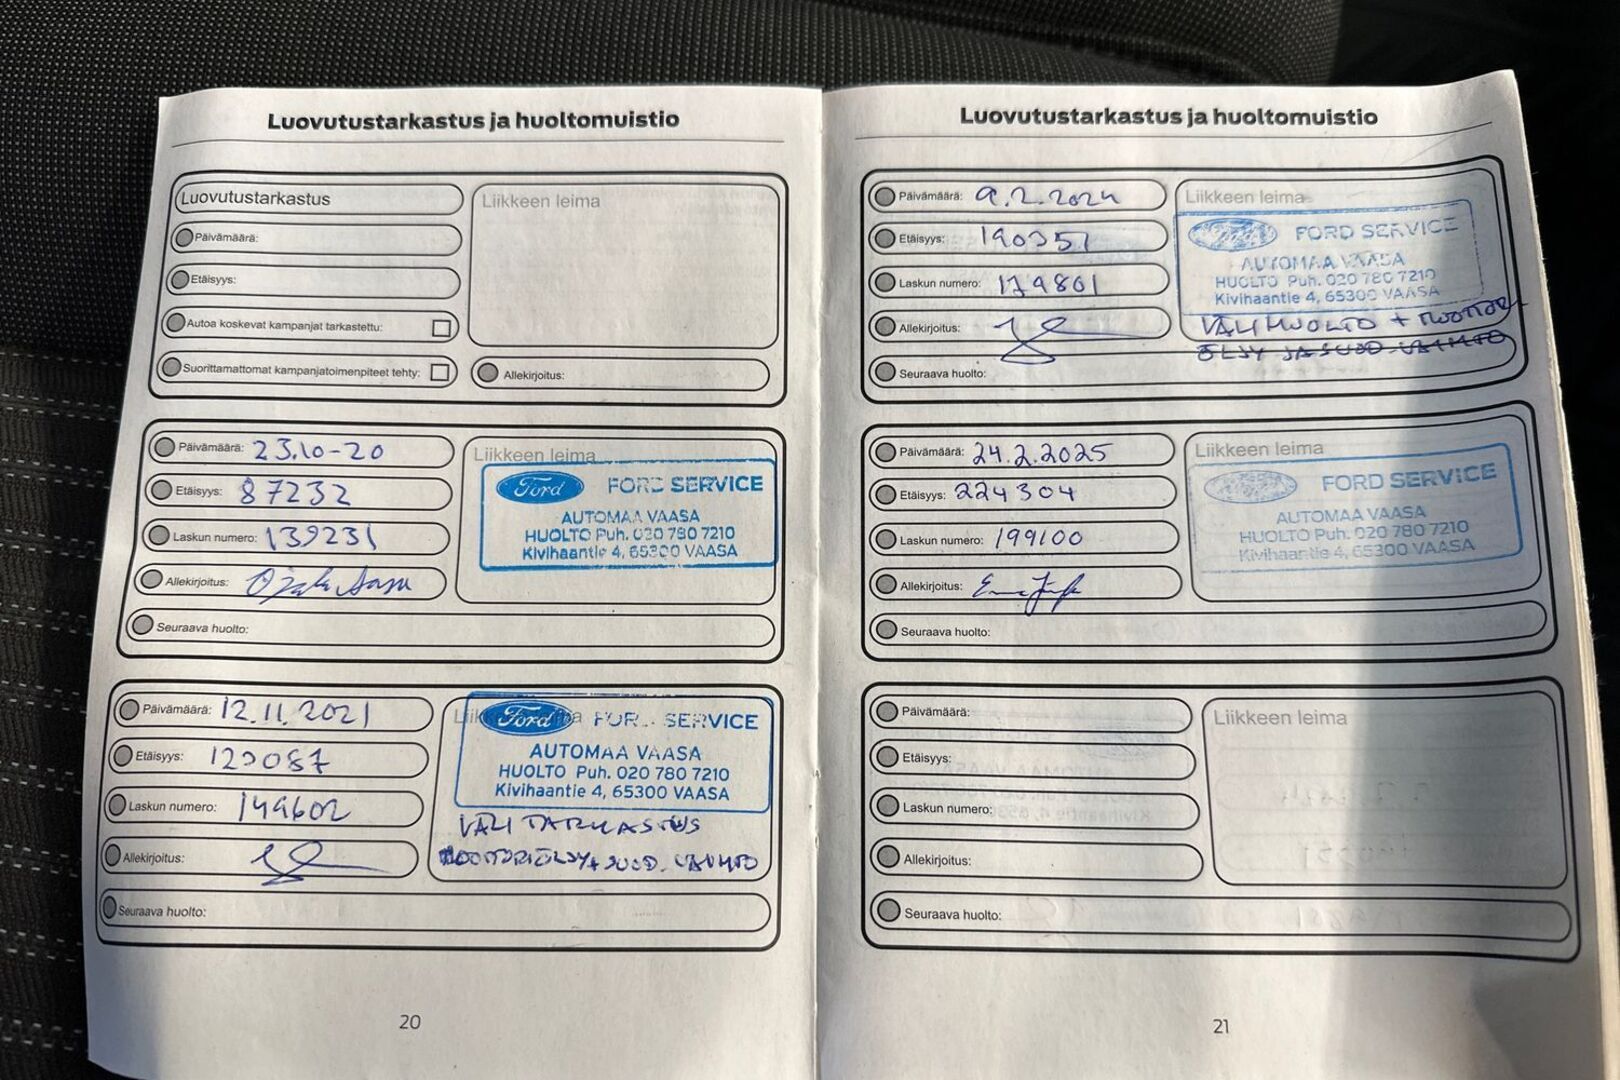 Luovutustarkastus ja huoltomuistio
Luovutustarkastus
Liikkeen leima
Päivämäärä:
Etäisyys:
Autoa koskevat kampanjat tarkastettu:
Suorittamattomat kampanjatoimenpiteet tehty:
Allekirjoitus:
Päivämäärä: 23.10-20
Etäisyys: 87232
Laskun numero: 139231
Allekirjoitus:
Seuraava huolto:
Liikkeen leima
Ford FORD SERVICE
AUTOMAA VAASA
HUOLTO Puh. 020 780 7210
Kivihaantie 4, 65300 VAASA
Päivämäärä: 12.11.2021
Etäisyys: 120087
Laskun numero: 149602
Allekirjoitus:
Seuraava huolto:
Ford FORD SERVICE
AUTOMAA VAASA
HUOLTO Puh. 020 780 7210
Kivihaantie 4, 65300 VAASA
VÄLITARKASTUS
MOOTTORIÖLJY+SUOD. VAIHTO
20
Luovutustarkastus ja huoltomuistio
Päivämäärä: 9.2.2024
Etäisyys: 190351
Laskun numero: 179801
Allekirjoitus:
Seuraava huolto:
Liikkeen leima
FORD SERVICE
AUTOMAA VAASA
HUOLTO Puh. 020 780 7210
Kivihaantie 4, 65300 VAASA
VÄLIHUOLTO +
ÖLJY JA SUOD. VAIHTO
Päivämäärä: 24.2.2025
Etäisyys: 224304
Laskun numero: 199100
Allekirjoitus:
Seuraava huolto:
Liikkeen leima
FORD SERVICE
AUTOMAA VAASA
HUOLTO Puh. 020 780 7210
Kivihaantie 4, 65300 VAASA
Päivämäärä:
Etäisyys:
Laskun numero:
Allekirjoitus:
Seuraava huolto:
Liikkeen leima
21